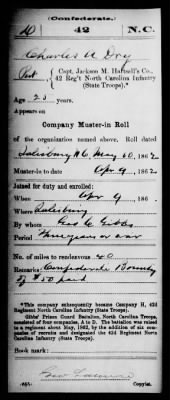 (Confederate.)
D 42 N.C.
Charles A Dry
Pvt, Capt. Jackson M. Hartsell's Co.,
42 Reg't North Carolina Infantry
(State Troops).*
Age 23 years.
Appears on
Company Muster-in Roll
of the organization named above. Roll dated
Salisbury N.C. May 10, 1862
Muster-in to date Apr 9, 1862
Joined for duty and enrolled:
When Apr 9, 186
Where Salisbury
By whom Geo. C. Gibbs
Period three years or war
No. of miles to rendezvous 40
Remarks: Confederate Bounty
of $50 paid
*This company subsequently became Company H, 42d
Regiment North Carolina Infantry (State Troops).
Gibbs' Prison Guard Battalion, North Carolina Troops,
consisted of four companies, A to D. The battalion was
raised to a regiment about May, 1862, by the addition of six com-
panies of recruits and designated the 42d Regiment North
Carolina Infantry (State Troops).
Book mark:
Copyist.